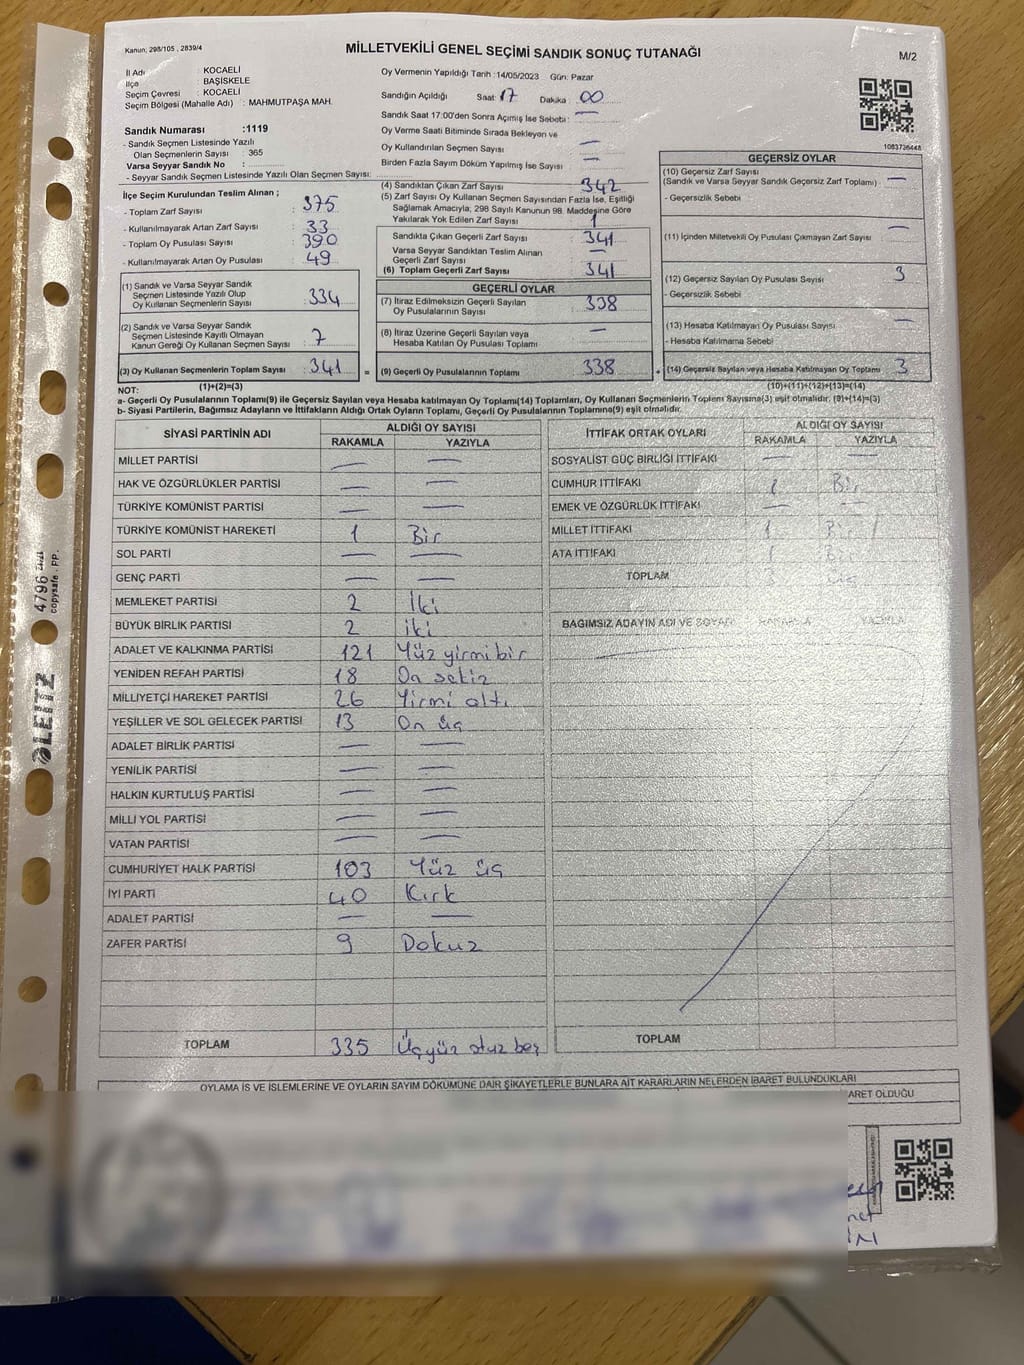 Kanun; 298/105 , 2839/4
MİLLETVEKİLİ GENEL SEÇİMİ SANDIK SONUÇ TUTANAĞI
M/2
İl Adı : KOCAELİ
İlçe : BAŞİSKELE
Seçim Çevresi : KOCAELİ
Seçim Bölgesi (Mahalle Adı) : MAHMUTPAŞA MAH.
Sandık Numarası :1119
- Sandık Seçmen Listesinde Yazılı
Olan Seçmenlerin Sayısı : 365
Varsa Seyyar Sandık No :
- Seyyar Sandık Seçmen Listesinde Yazılı Olan Seçmen Sayısı:
Oy Vermenin Yapıldığı Tarih :14/05/2023 Gün: Pazar
Sandığın Açıldığı Saat: 17 Dakika : 00
Sandık Saat 17:00'den Sonra Açımış İse Sebebi : —
Oy Verme Saati Bitiminde Sırada Bekleyen ve
Oy Kullandırılan Seçmen Sayısı : —
Birden Fazla Sayım Döküm Yapılmış İse Sayısı : —
1083736448
İlçe Seçim Kurulundan Teslim Alınan ;
- Toplam Zarf Sayısı : 375
- Kullanılmayarak Artan Zarf Sayısı : 33
- Toplam Oy Pusulası Sayısı : 390
- Kullanılmayarak Artan Oy Pusulası : 49
(1) Sandık ve Varsa Seyyar Sandık
Seçmen Listesinde Yazılı Olup
Oy Kullanan Seçmenlerin Sayısı : 334
(2) Sandık ve Varsa Seyyar Sandık
Seçmen Listesinde Kayıtlı Olmayan
Kanun Gereği Oy Kullanan Seçmen Sayısı : 7
(3) Oy Kullanan Seçmenlerin Toplam Sayısı : 341
(1)+(2)=(3)
(4) Sandıktan Çıkan Zarf Sayısı : 342
(5) Zarf Sayısı Oy Kullanan Seçmen Sayısından Fazla İse, Eşitliği
Sağlamak Amacıyla, 298 Sayılı Kanunun 98. Maddesine Göre
Yakılarak Yok Edilen Zarf Sayısı : 1
Sandıkta Çıkan Geçerli Zarf Sayısı : 341
Varsa Seyyar Sandıktan Teslim Alınan
Geçerli Zarf Sayısı : —
(6) Toplam Geçerli Zarf Sayısı : 341
GEÇERLİ OYLAR
(7) İtiraz Edilmeksizin Geçerli Sayılan
Oy Pusulalarının Sayısı : 338
(8) İtiraz Üzerine Geçerli Sayılan veya
Hesaba Katılan Oy Pusulası Toplamı : —
= (9) Geçerli Oy Pusulalarının Toplamı : 338
GEÇERSİZ OYLAR
(10) Geçersiz Zarf Sayısı
(Sandık ve Varsa Seyyar Sandık Geçersiz Zarf Toplamı) : —
- Geçersizlik Sebebi
(11) İçinden Milletvekili Oy Pusulası Çıkmayan Zarf Sayısı : —
(12) Geçersiz Sayılan Oy Pusulası Sayısı : 3
- Geçersizlik Sebebi
(13) Hesaba Katılmayan Oy Pusulası Sayısı : —
- Hesaba Katılmama Sebebi
+ (14) Geçersiz Sayılan veya Hesaba Katılmayan Oy Toplamı : 3
(10)+(11)+(12)+(13)=(14)
NOT:
a- Geçerli Oy Pusulalarının Toplamı(9) ile Geçersiz Sayılan veya Hesaba katılmayan Oy Toplamı(14) Toplamları, Oy Kullanan Seçmenlerin Toplam Sayısına(3) eşit olmalıdır. (9)+(14)=(3)
b- Siyasi Partilerin, Bağımsız Adayların ve İttifakların Aldığı Ortak Oyların Toplamı, Geçerli Oy Pusulalarının Toplamına(9) eşit olmalıdır.
SİYASİ PARTİNİN ADI ALDIĞI OY SAYISI
RAKAMLA YAZIYLA
MİLLET PARTİSİ — —
HAK VE ÖZGÜRLÜKLER PARTİSİ — —
TÜRKİYE KOMÜNİST PARTİSİ — —
TÜRKİYE KOMÜNİST HAREKETİ 1 Bir
SOL PARTİ — —
GENÇ PARTİ — —
MEMLEKET PARTİSİ 2 İki
BÜYÜK BİRLİK PARTİSİ 2 iki
ADALET VE KALKINMA PARTİSİ 121 Yüz yirmi bir
YENİDEN REFAH PARTİSİ 18 On sekiz
MİLLİYETÇİ HAREKET PARTİSİ 26 Yirmi altı
YEŞİLLER VE SOL GELECEK PARTİSİ 13 On üç
ADALET BİRLİK PARTİSİ — —
YENİLİK PARTİSİ — —
HALKIN KURTULUŞ PARTİSİ — —
MİLLİ YOL PARTİSİ — —
VATAN PARTİSİ — —
CUMHURİYET HALK PARTİSİ 103 Yüz üç
İYİ PARTİ 40 Kırk
ADALET PARTİSİ — —
ZAFER PARTİSİ 9 Dokuz
TOPLAM 335 Üçyüz otuz beş
İTTİFAK ORTAK OYLARI ALDIĞI OY SAYISI
RAKAMLA YAZIYLA
SOSYALİST GÜÇ BİRLİĞİ İTTİFAKI — —
CUMHUR İTTİFAKI 1 Bir
EMEK VE ÖZGÜRLÜK İTTİFAKI — —
MİLLET İTTİFAKI 1 Bir
ATA İTTİFAKI 1 Bir
TOPLAM 3 üç
BAĞIMSIZ ADAYIN ADI VE SOYADI RAKAMLA YAZIYLA
TOPLAM
OYLAMA İŞ VE İŞLEMLERİNE VE OYLARIN SAYIM DÖKÜMÜNE DAİR ŞİKAYETLERLE BUNLARA AİT KARARLARIN NELERDEN İBARET BULUNDUKLARI
ARET OLDUĞU
LEITZ 4796
copysafe - PP.